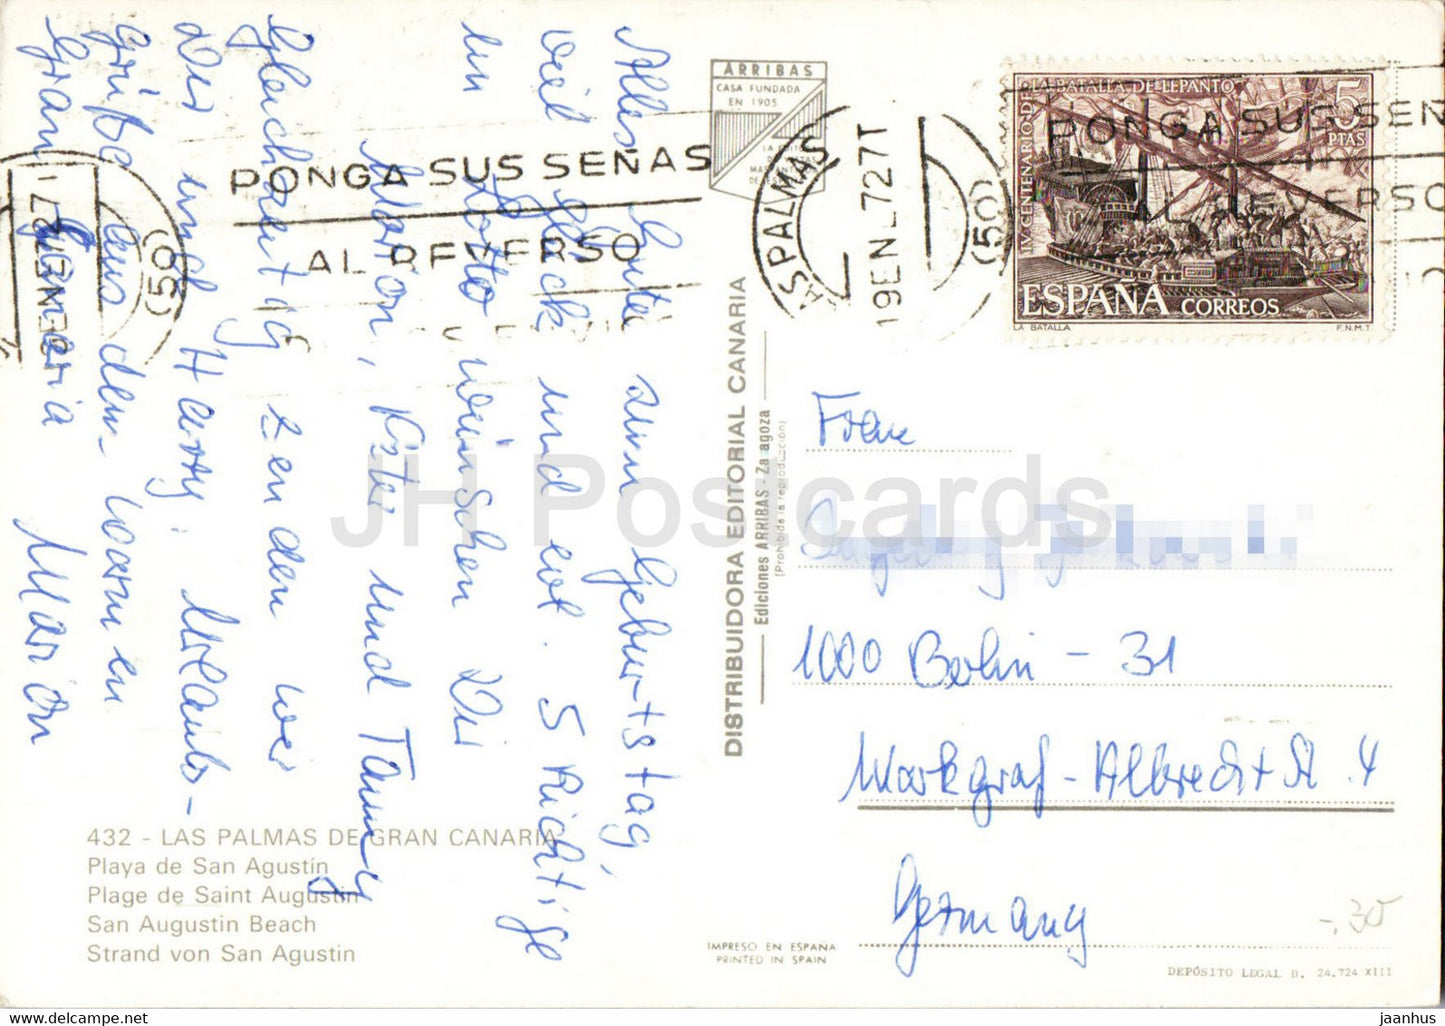 Alles Gute zum Geburtstag,
viel Glück und evt. 5 Richtige
im Lotto wünschen Dir
Marion, Kste und Tammy
Gleichzeitig senden wir
Dir und Harry, Urlaubs-
grüße aus dem warmen
Gran Canaria
Marion
ARRIBAS
CASA FUNDADA
EN 1905
PONGA SUS SEÑAS
AL REVERSO
(50)
19 EN. 72
LAS PALMAS
19 EN. 72 7T
(50)
PONGA SUS SEÑ
AL REVERSO
IV CENTENARIO DE LA BATALLA DE LEPANTO
5 PTAS
ESPAÑA CORREOS
LA BATALLA
F.N.M.T
DISTRIBUIDORA EDITORIAL CANARIA
Ediciones ARRIBAS - Zaragoza
(Prohibida la reproducción)
Frau
1000 Berlin - 31
Markgraf-Albrecht St. 4
Germany
-.30
432 - LAS PALMAS DE GRAN CANARIA
Playa de San Agustín
Plage de Saint Augustin
San Augustin Beach
Strand von San Agustin
IMPRESO EN ESPAÑA
PRINTED IN SPAIN
DEPÓSITO LEGAL B. 24.724 XIII
JH Postcards
jaanhus